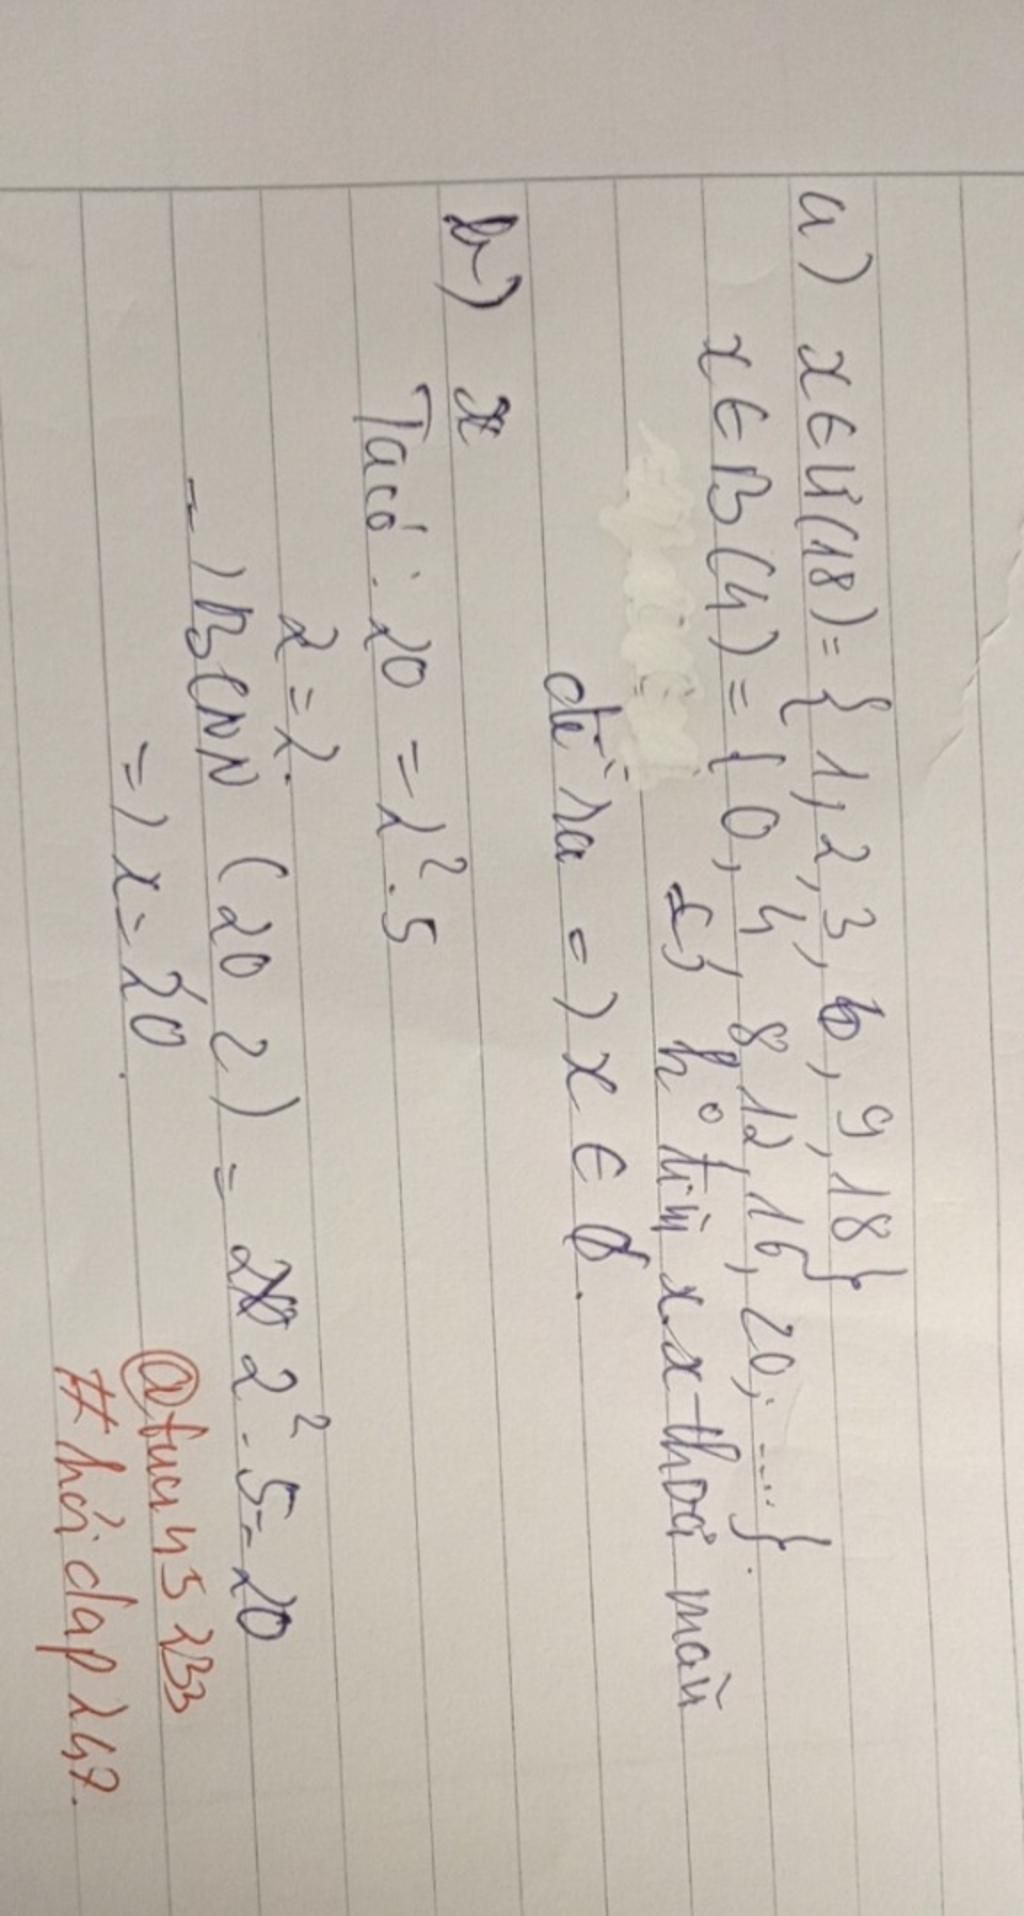 a) x ∈ Ư(18) = { 1, 2, 3, 6, 9, 18 }
x ∈ B(4) = { 0, 4, 8, 12, 16, 20, .... }.
k° tìm x x thoả mãn
đề ra =) x ∈ ∅.
b) x
Ta có : 20 = 2².5
2 = 2.
=) BCNN (20 2) = 2².5 = 20
=) x = 20.
@fuun5233
#hỏi dap 247.